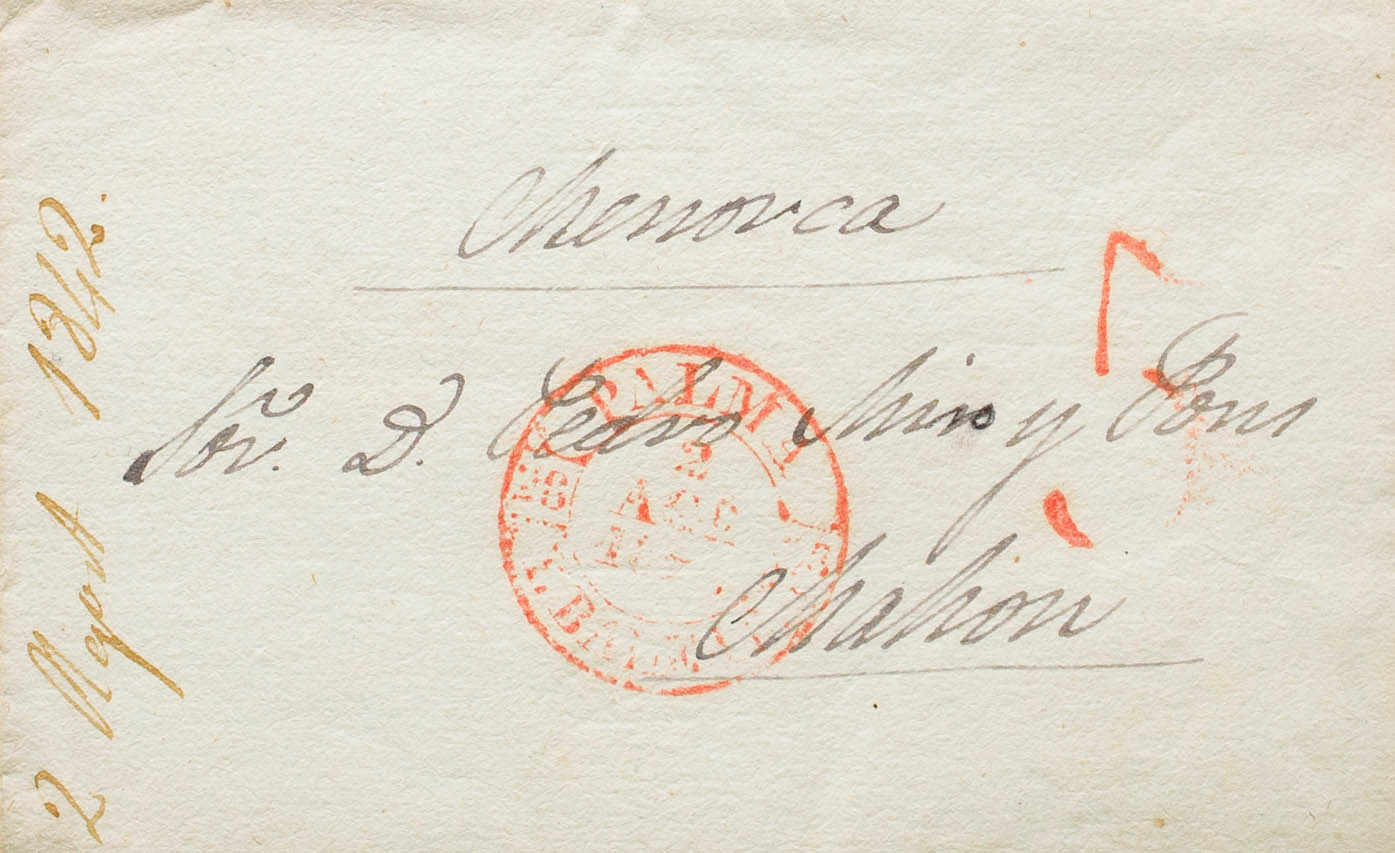 Menorca
Sor. D. Pedro Miro y Pons
Mahon
2 Agost 1842.
PALMA
2
AGO
1842
BALEARES